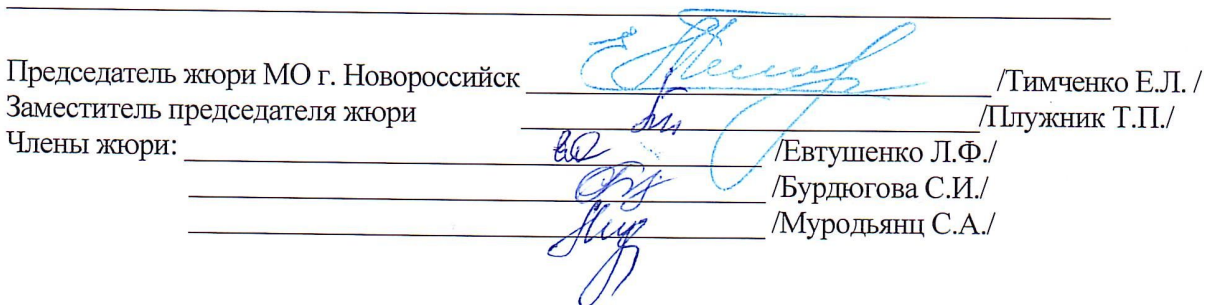 Председатель жюри МО г. Новороссийск /Тимченко Е.Л. /
Заместитель председателя жюри /Плужник Т.П./
Члены жюри: /Евтушенко Л.Ф./
/Бурдюгова С.И./
/Муродьянц С.А./